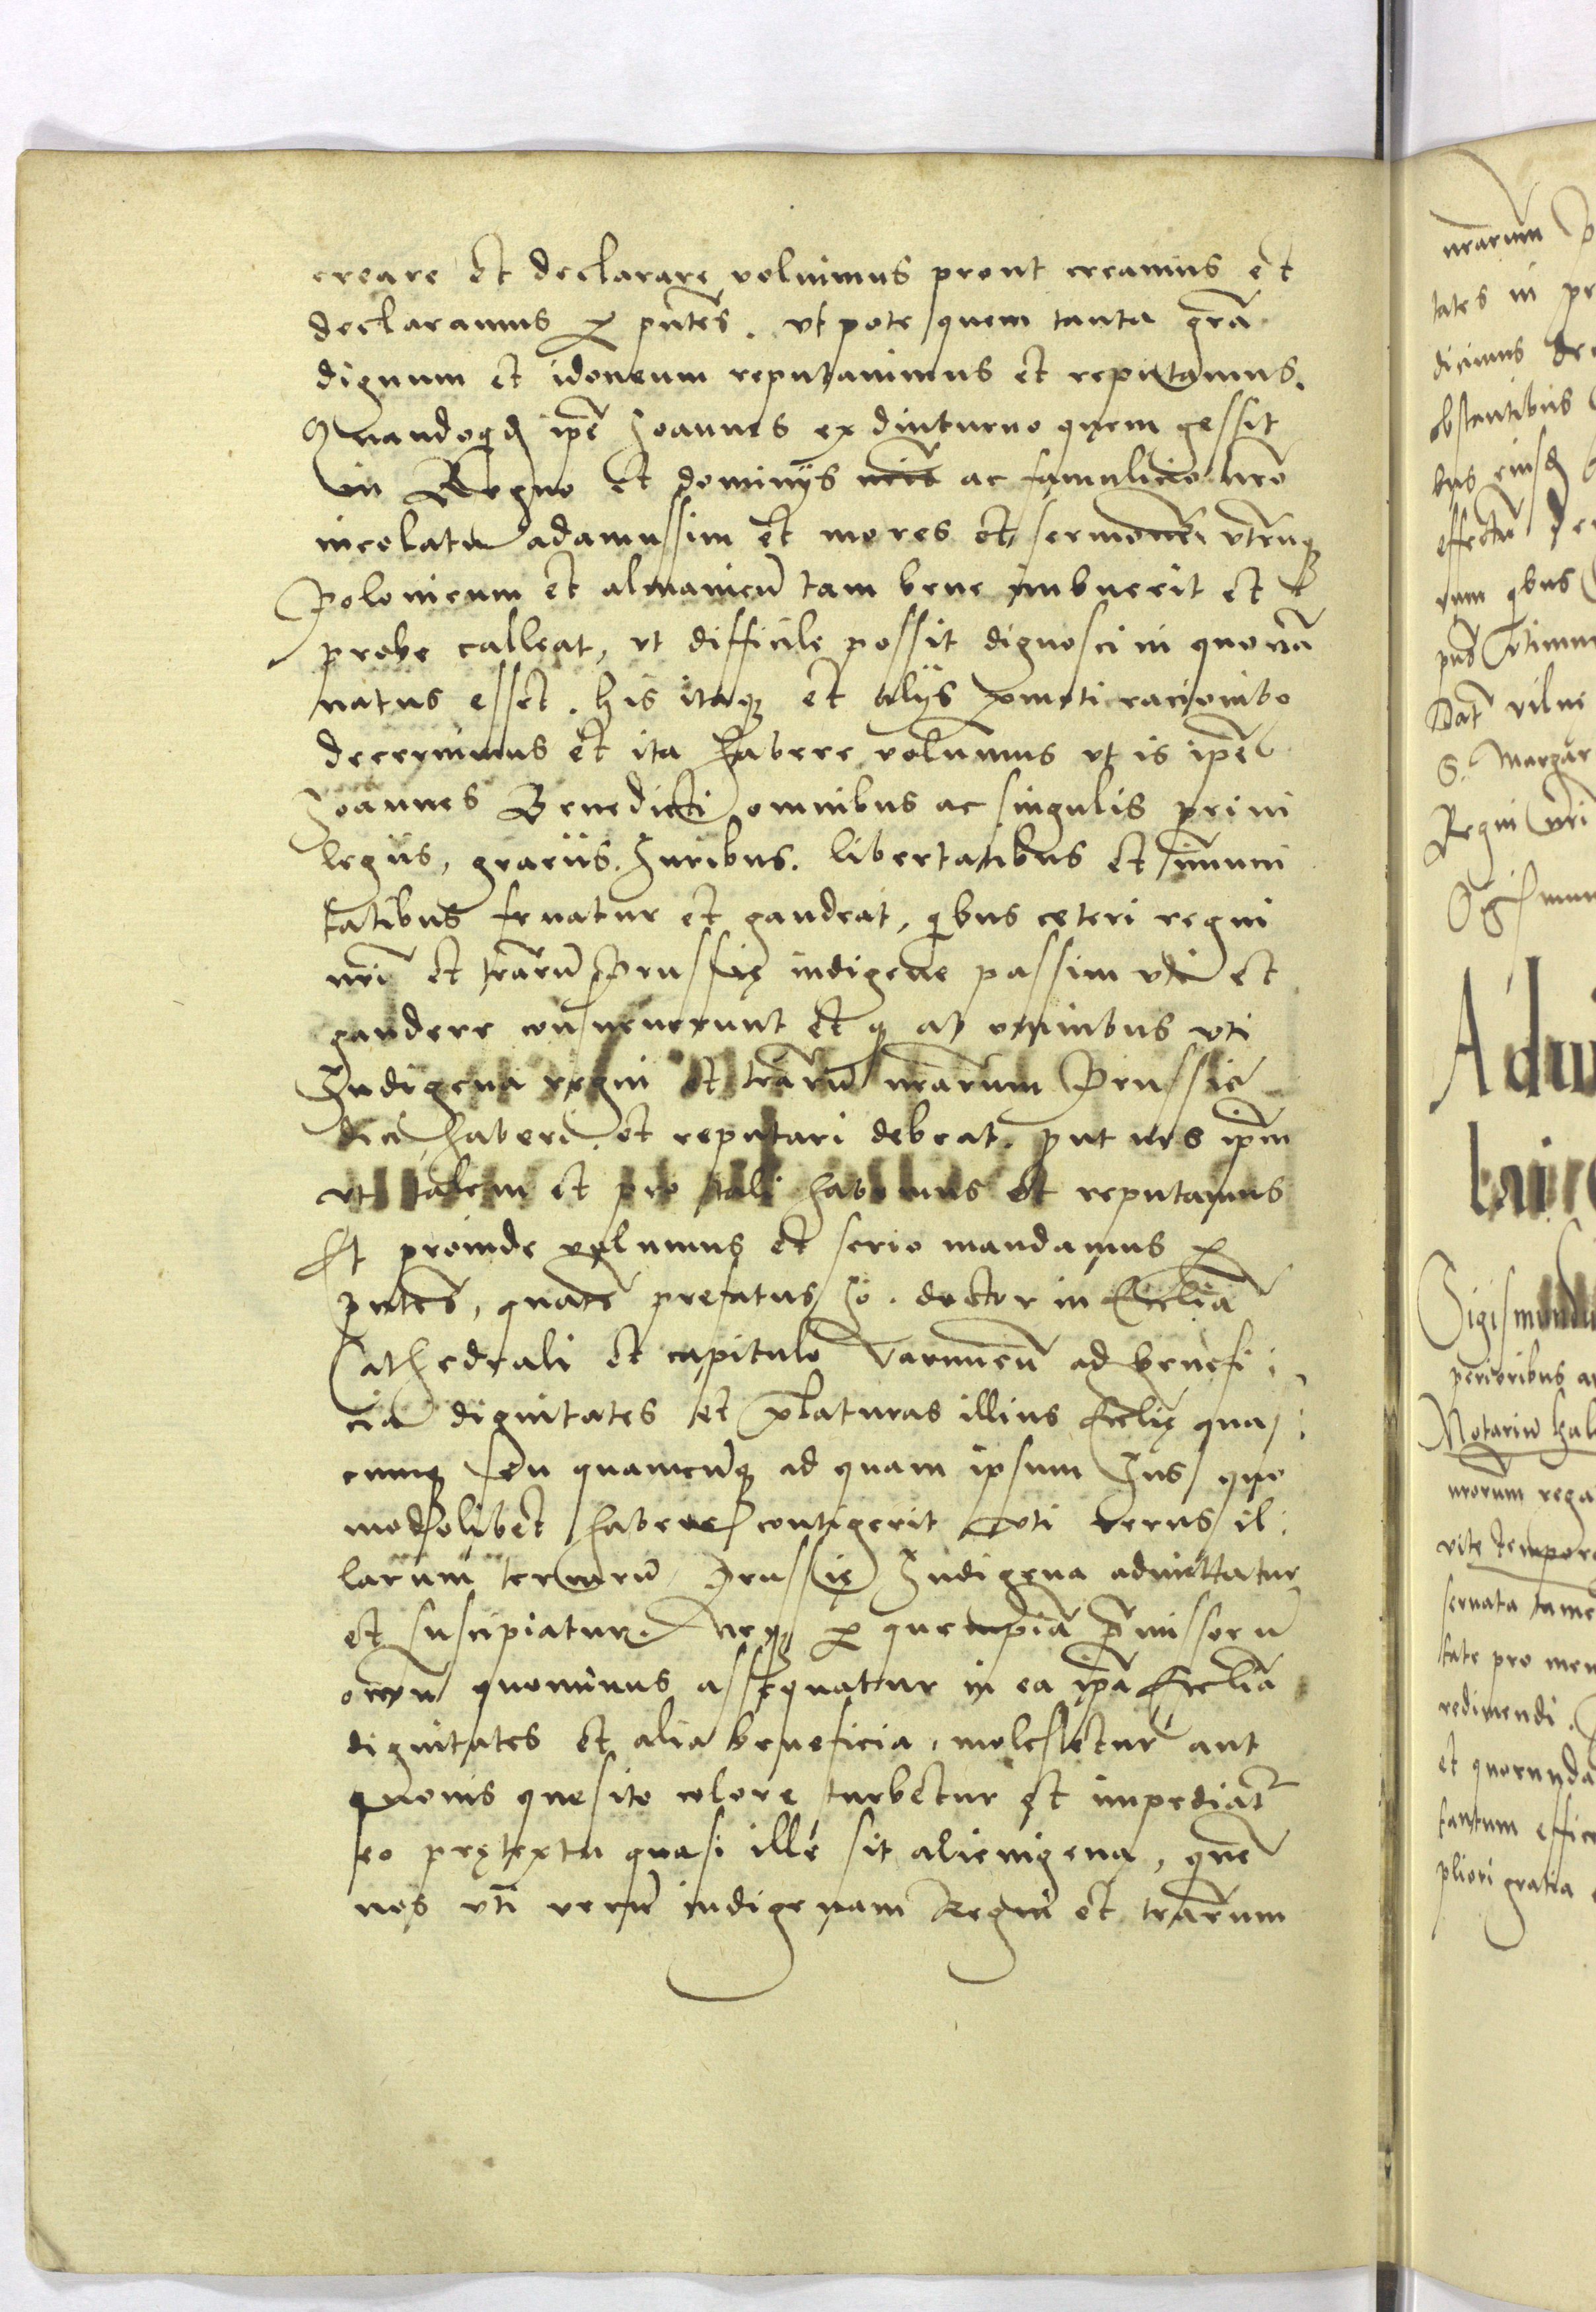 creare et declarare voluimus prout creamus et
declaramus p pntes. ut pote quem tanta gra
dignum et idoneum reputavimus et reputamus.
Quandoqd ipe Joannes ex diuturno quem gessit
in Regno et dominijs nris ac famulicio nro
incolatu adamussim et mores et sermonem utrunq
Polonicum et almanicu tam bene imbuerit et
probe calleat, ut difficile possit dignosci in quo na
natus esset. his itaq et alijs pmoti racionibo
decernimus et ita habere volumus ut is ipe
Joannes Benedicti omnibus ac singulis privi
legiis, graciis. Juribus. libertatibus et immuni
tatibus fruatur et gaudeat, qbus ceteri regni
nri et trarum Prussię indigene passim uti et
gaudere consueverunt et q ab omnibus uti
Indigena regni et trarum nrarum Prussie
dici haberi et reputari debeat. put nos ipm
ut talem et pro tali habemus et reputamus
Et proinde volumus et serio mandamus p
pntes, quate prefatus Jo. doctor in Ecclia
Cathedrali et capitulo Varmien ad benefi
cia dignitates et platuras illius Ecclię quaʒ
cunq seu quamcunq ad quam ipsum Jus quo
modolibet habere contigerit uti verus il
larum terrarum Prussię Indigena admittatur
et suscipiatur. neq p quempia pmissoru
oium quominus assequatur in ea ipa Ecclia
dignitates et alia beneficia, molestetur aut
quovis quesito colore turbetur et impediat
eo prętextu quasi ille sit alienigena, que
nos uti veru indigenam Regni et trarum
nrarum
tates in
dicimus
obstantibus
bus eiusd
effectu
rum qbus
pns
Dat vilne
S. Margar
Regni nri
Sigismundu
perioribus
Notariu
nrorum rega
vite tempor
servata tame
tate pro men
redimendi.
et quorunda
tantum effic
pliori gratia